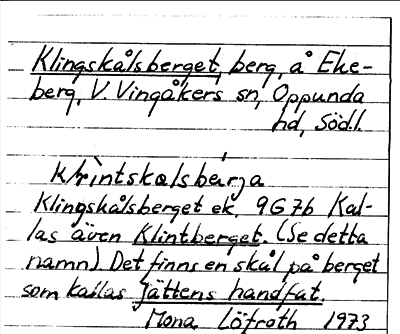 Klingskålsberget, berg, å Eke-
berg, V. Vingåkers sn, Oppunda
hd, Södl.
klìntskalsbárja
Klingskålsberget ek. 9G7b Kal-
las även Klintberget. (Se detta
namn). Det finns en skål på berget
som kallas Jättens handfat.
Mona Löfroth 1973